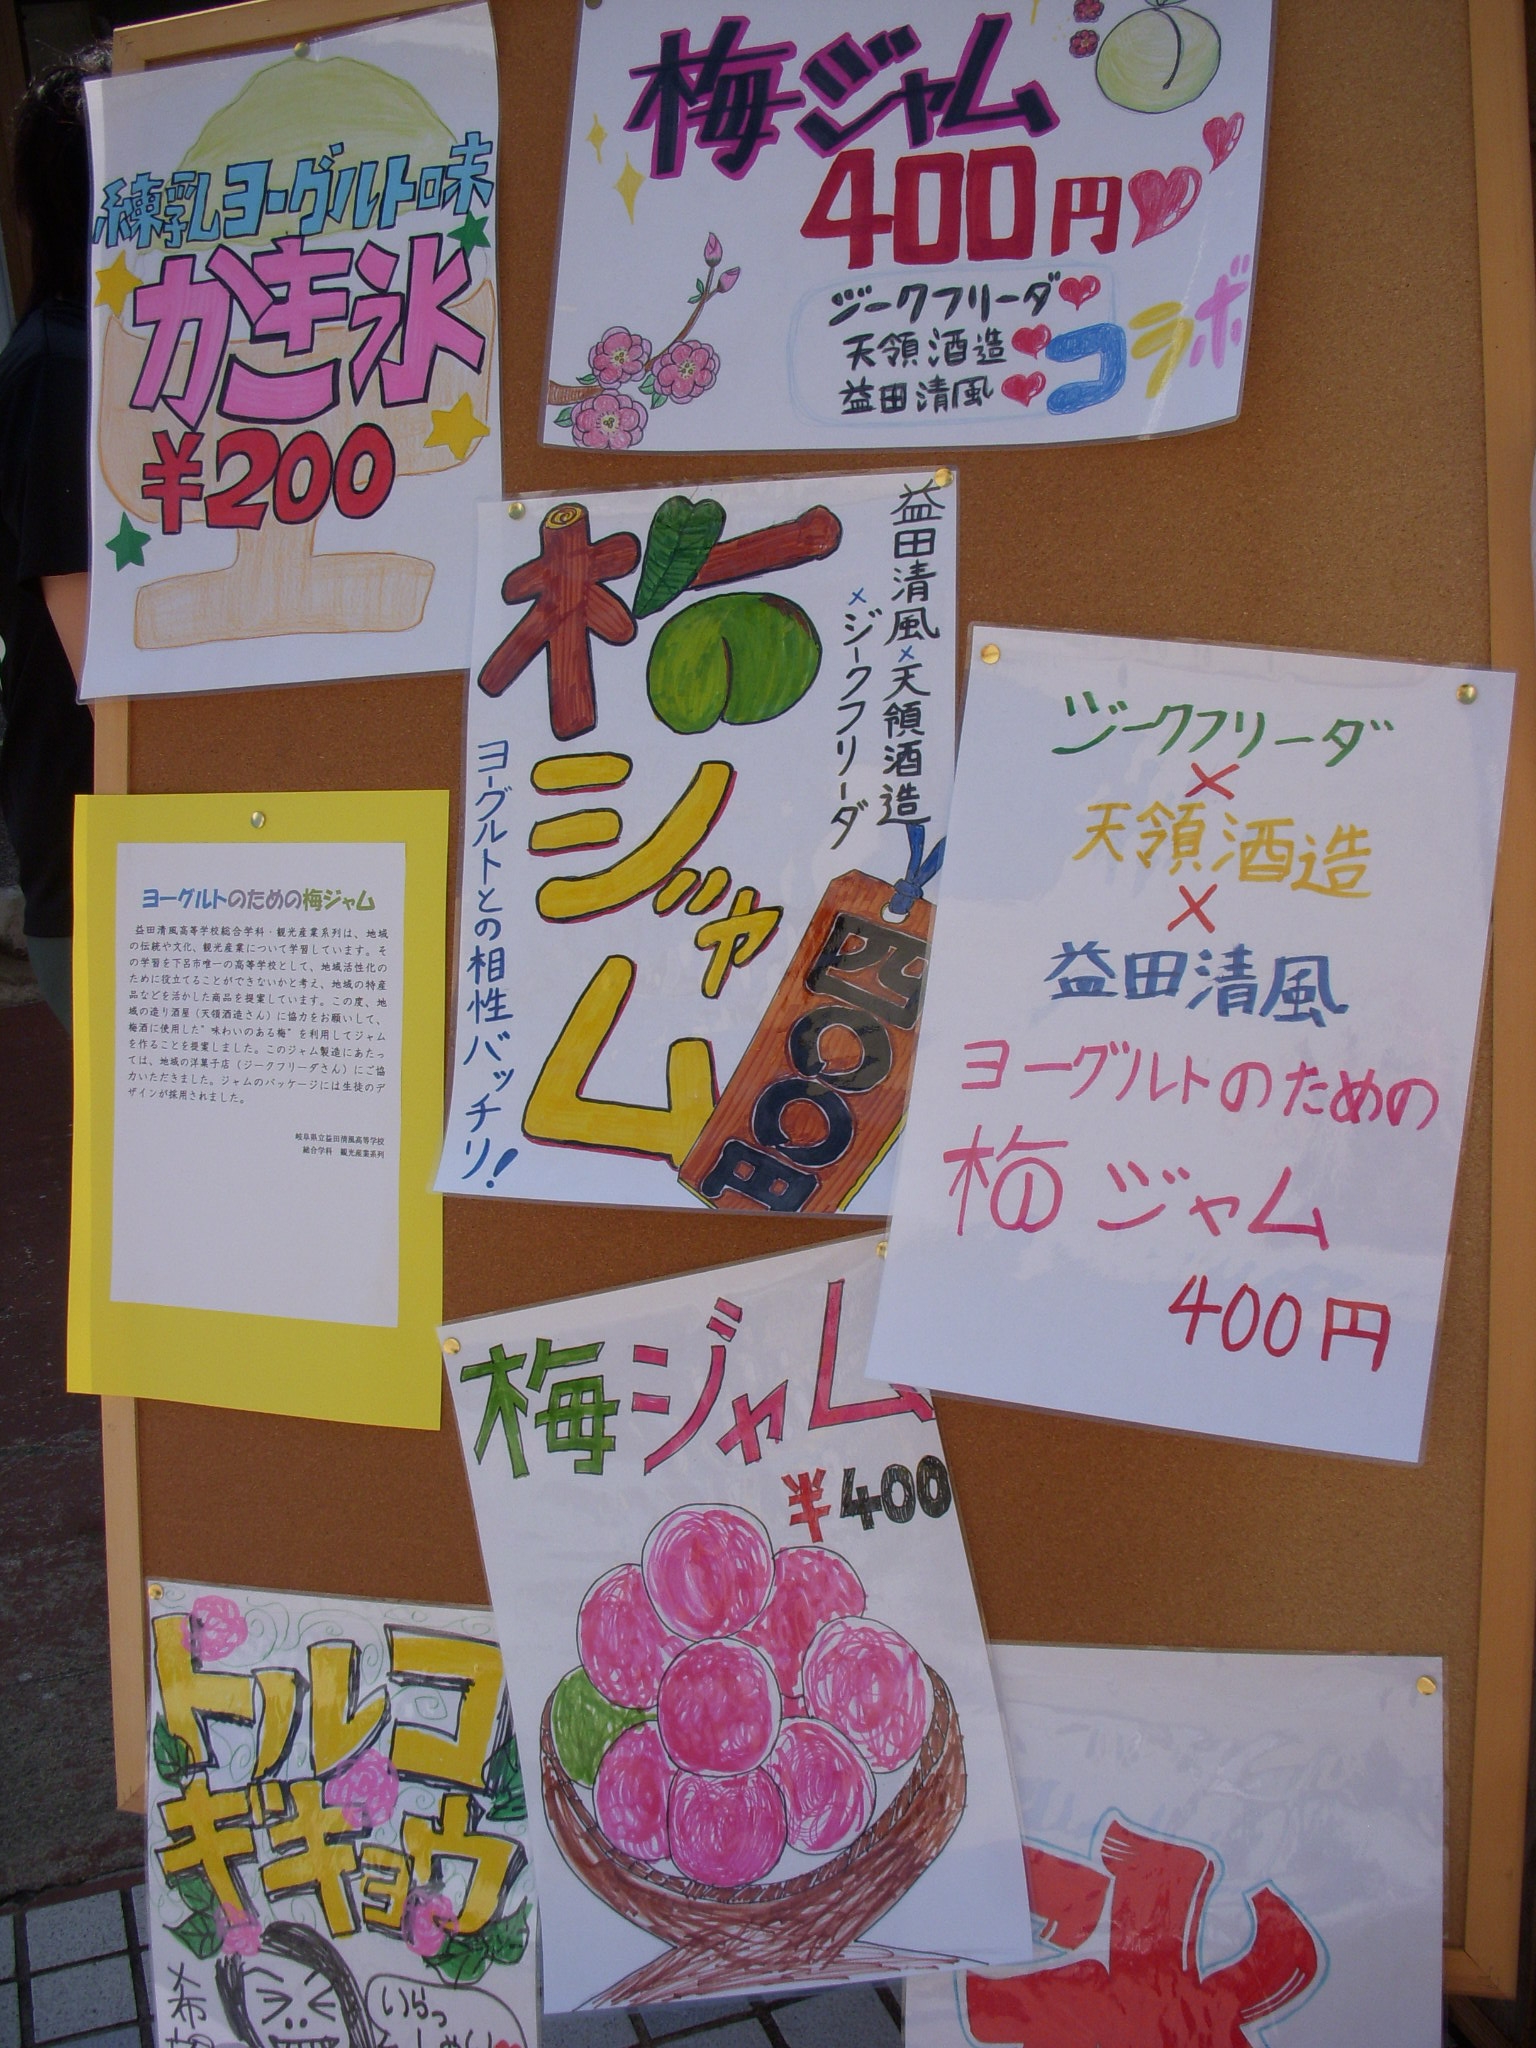 練乳ヨーグルト味
かき氷
¥200
梅ジャム
400円
ジークフリーダ
天領酒造
益田清風
コラボ
益田清風×天領酒造
×ジークフリーダ
梅ジャム
ヨーグルトとの相性バッチリ!
四〇〇円
ジークフリーダ
×
天領酒造
×
益田清風
ヨーグルトのための
梅ジャム
400円
ヨーグルトのための梅ジャム
益田清風高等学校総合学科・観光産業系列は、地域
の伝統や文化、観光産業について学習しています。そ
の学習を下呂市唯一の高等学校として、地域活性化の
ために役立てることができないかと考え、地域の特産
品などを活かした商品を提案しています。この度、地
域の造り酒屋(天領酒造さん)に協力をお願いして、
梅酒に使用した"味わいのある梅"を利用してジャム
を作ることを提案しました。このジャム製造にあたっ
ては、地域の洋菓子店(ジークフリーダさん)にご協
力いただきました。ジャムのパッケージには生徒のデ
ザインが採用されました。
岐阜県立益田清風高等学校
総合学科 観光産業系列
梅ジャム
¥400
トルコ
ギキョウ
いらっ